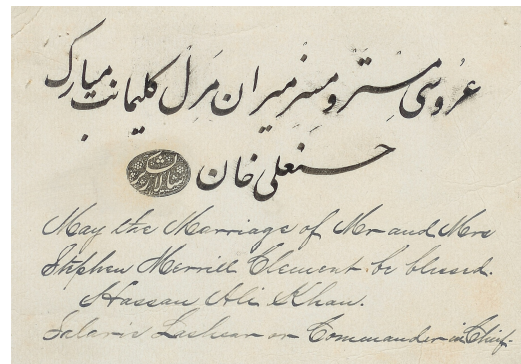 عروسی مستر و مسز میران مرل کلیمانت مبارک
حسنعلی خان
سالار لشکر
May the Marriage of Mr and Mrs
Stephen Merrill Clement be blessed.
Hassan Ali Khan.
Salarie Lashear or Commander in Chief.